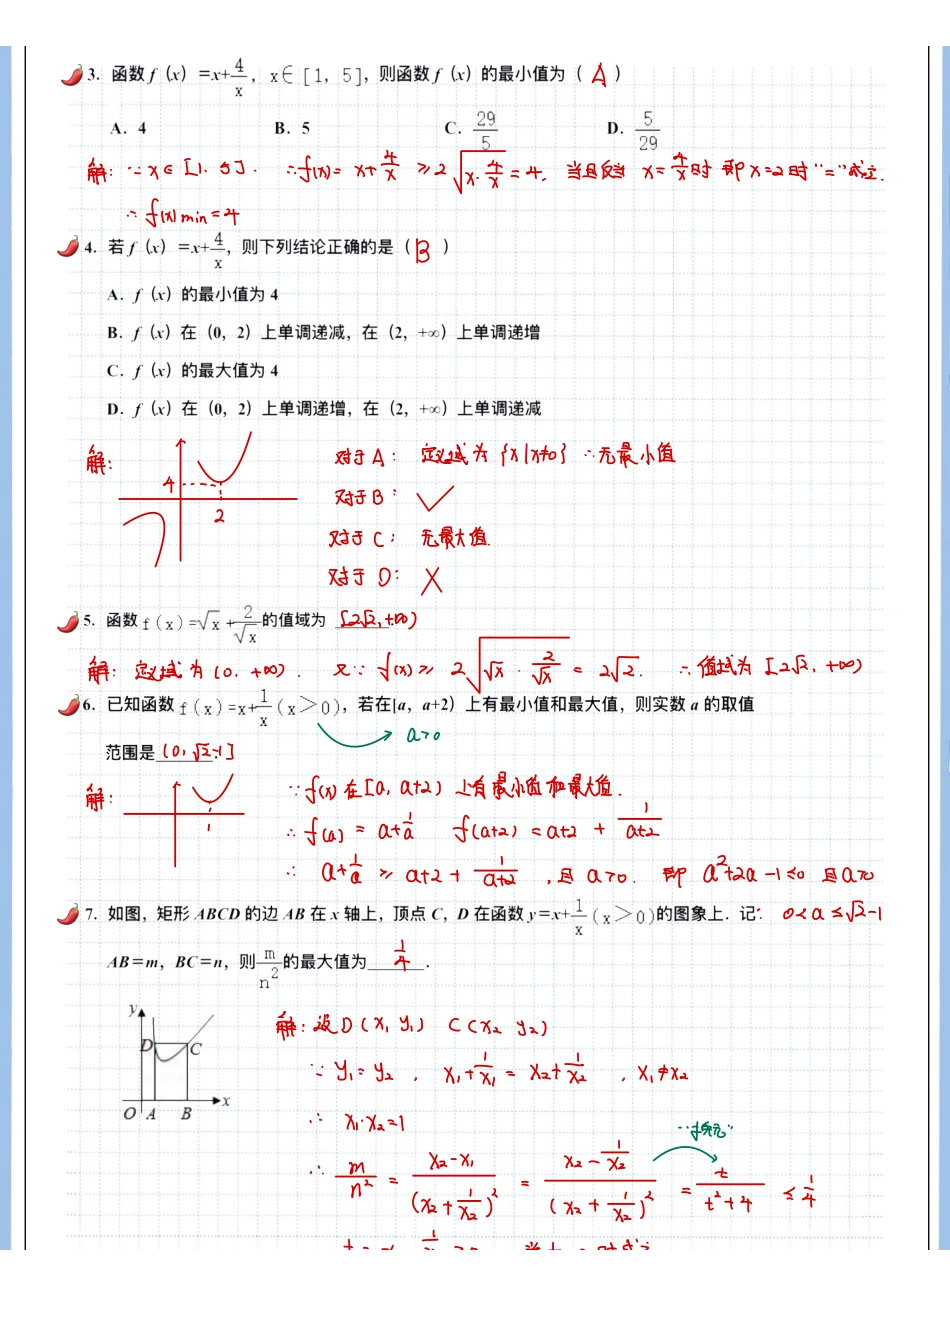 3. 函数 f（x）=x+4/x，x∈[1，5]，则函数 f（x）的最小值为（ A ）
A．4 B．5 C．29/5 D．5/29
解：∵x∈[1，5]． ∴f(x)= x+4/x ≥2√(x·4/x)=4．当且仅当 x=4/x时 即x=2时“=”成立．
∴f(x)min=4
4. 若 f（x）=x+4/x，则下列结论正确的是（ B ）
A．f（x）的最小值为 4
B．f（x）在（0，2）上单调递减，在（2，+∞）上单调递增
C．f（x）的最大值为 4
D．f（x）在（0，2）上单调递增，在（2，+∞）上单调递减
解：
4
2
对于A：定义域为{x|x≠0} ∴无最小值
对于B：✓
对于C：无最大值．
对于D：X
5. 函数 f(x)=√x+2/√x 的值域为 [2√2,+∞)
解：定义域为(0，+∞)． 又∵f(x)≥ 2√(√x·2/√x) = 2√2． ∴值域为[2√2，+∞)
6. 已知函数 f(x)=x+1/x(x＞0)，若在[a，a+2）上有最小值和最大值，则实数 a 的取值
a>0
范围是 (0，√2-1]．
解：
1
∵f(x)在[a，a+2)上有最小值和最大值．
∴f(a) = a+1/a f(a+2)=a+2 + 1/a+2
∴ a+1/a ≥ a+2+1/a+2，且a>0．即 a²+2a-1≤0 且a>0
7. 如图，矩形 ABCD 的边 AB 在 x 轴上，顶点 C，D 在函数 y=x+1/x(x＞0)的图象上．记： 0<a≤√2-1
AB=m，BC=n，则m/n²的最大值为 1/4 ．
y
D C
O A B x
解：设D(x₁ y₁) C(x₂ y₂)
∵y₁=y₂， x₁+1/x₁=x₂+1/x₂，x₁≠x₂
∴ x₁·x₂=1
“换元”
∴ m/n² = x₂-x₁/(x₂+1/x₂)² = x₂-1/x₂/(x₂+1/x₂)² = t/t²+4 ≤1/4